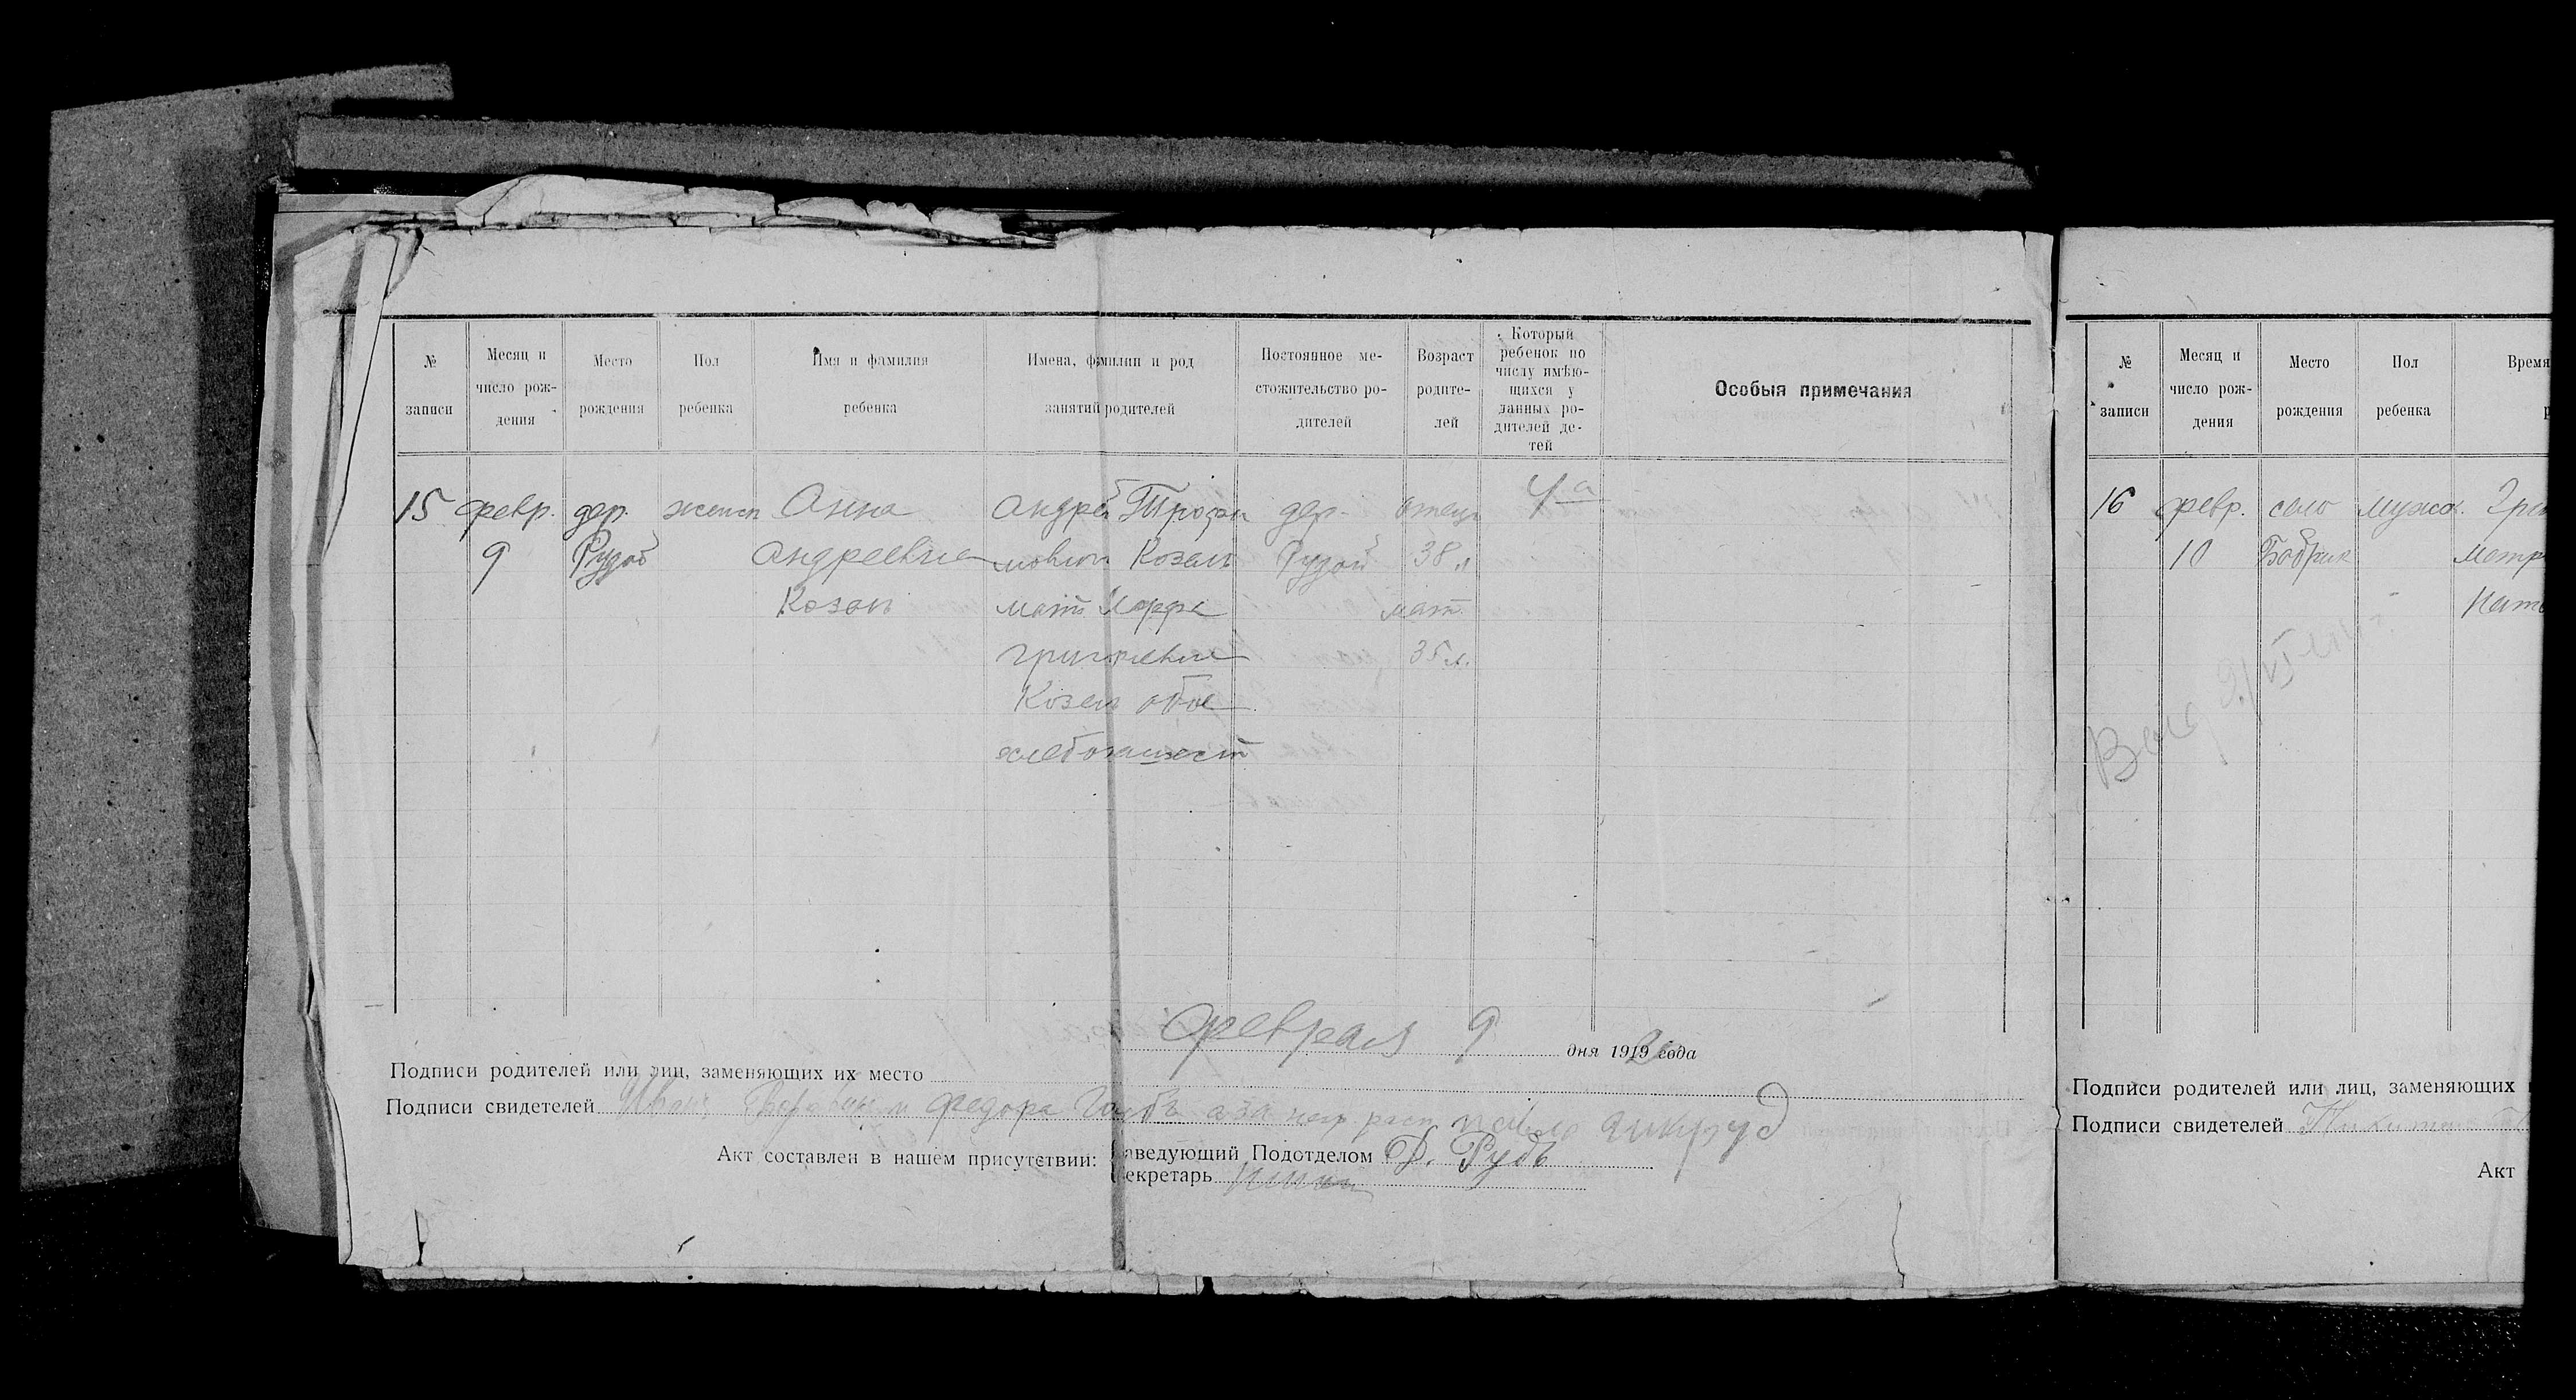 № записи
Месяц и число рож-дения
Место рождения
Пол ребенка
Имя и фамилия ребенка
Имена, фамилии и род занятий родителей
Постоянное ме-стожительство ро-дителей
Возраст родите-лей
Который ребенок по числу имѣю-щихся у данных ро-дителей де-тей
Особыя примечания
15 февр. дер. женск Анна Андрей Трофи дер. отец 4а
9 Рудой Андреевна мович Козел Рудой 38 л
Козел мат. Марфа мат.
Григорьевна 35 л.
Козел обое
хлебопашест
февраля 9 дня 1919 20 года
Подписи родителей или лиц, заменяющих их место
Подписи свидетелей Иван Федора Голуб а за негр расп
Акт составлен в нашем присутствии:
аведующий Подотделом Д. Рудь
екретарь
№ записи
Месяц и число рож-дения
Место рождения
Пол ребенка
Время
16 февр. село мужск.
10 Бобрик
Подписи родителей или лиц, заменяющих
Подписи свидетелей
Акт